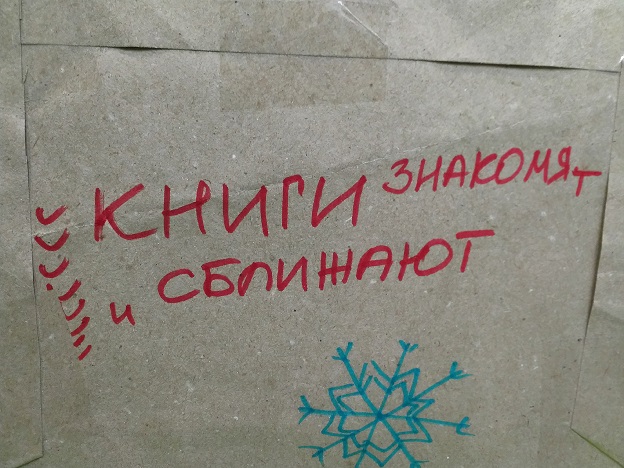 КНИГИ ЗНАКОМЯТ
и СБЛИЖАЮТ